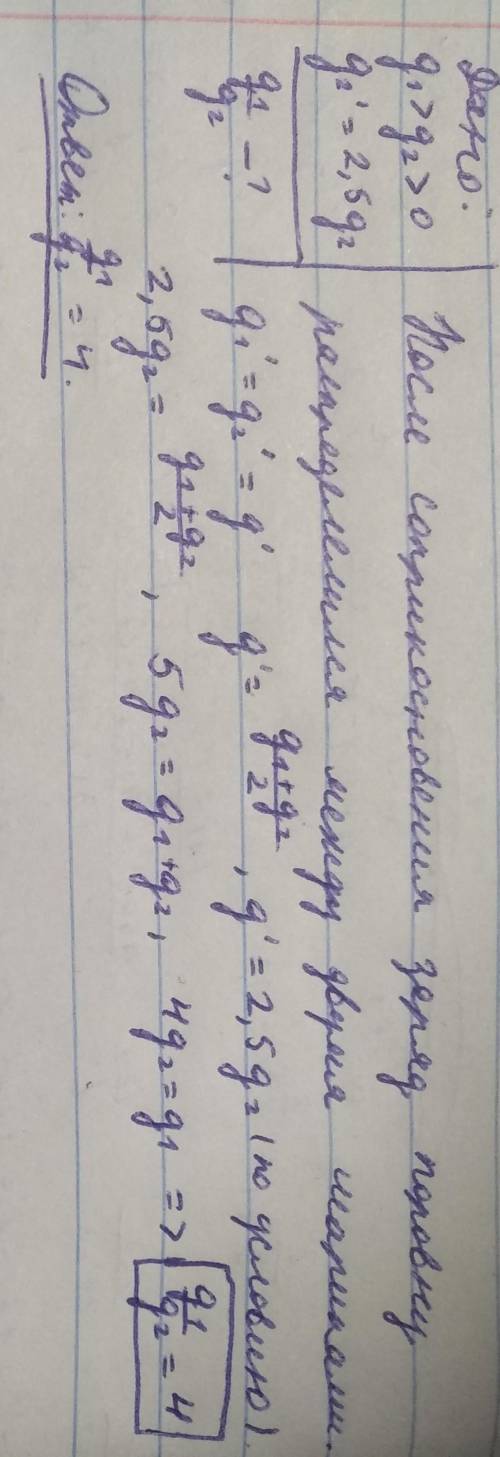 Дано:
q₁ > q₂ > 0
q₂' = 2,5q₂
q₁/q₂ – ?
После соприкосновения заряд поровну
распределился между двумя шариками.
q₁' = q₂' = q' q' = (q₁+q₂)/2, q' = 2,5q₂ (по условию).
2,5q₂ = (q₁+q₂)/2, 5q₂ = q₁+q₂, 4q₂ = q₁ => q₁/q₂ = 4
Ответ: q₁/q₂ = 4.